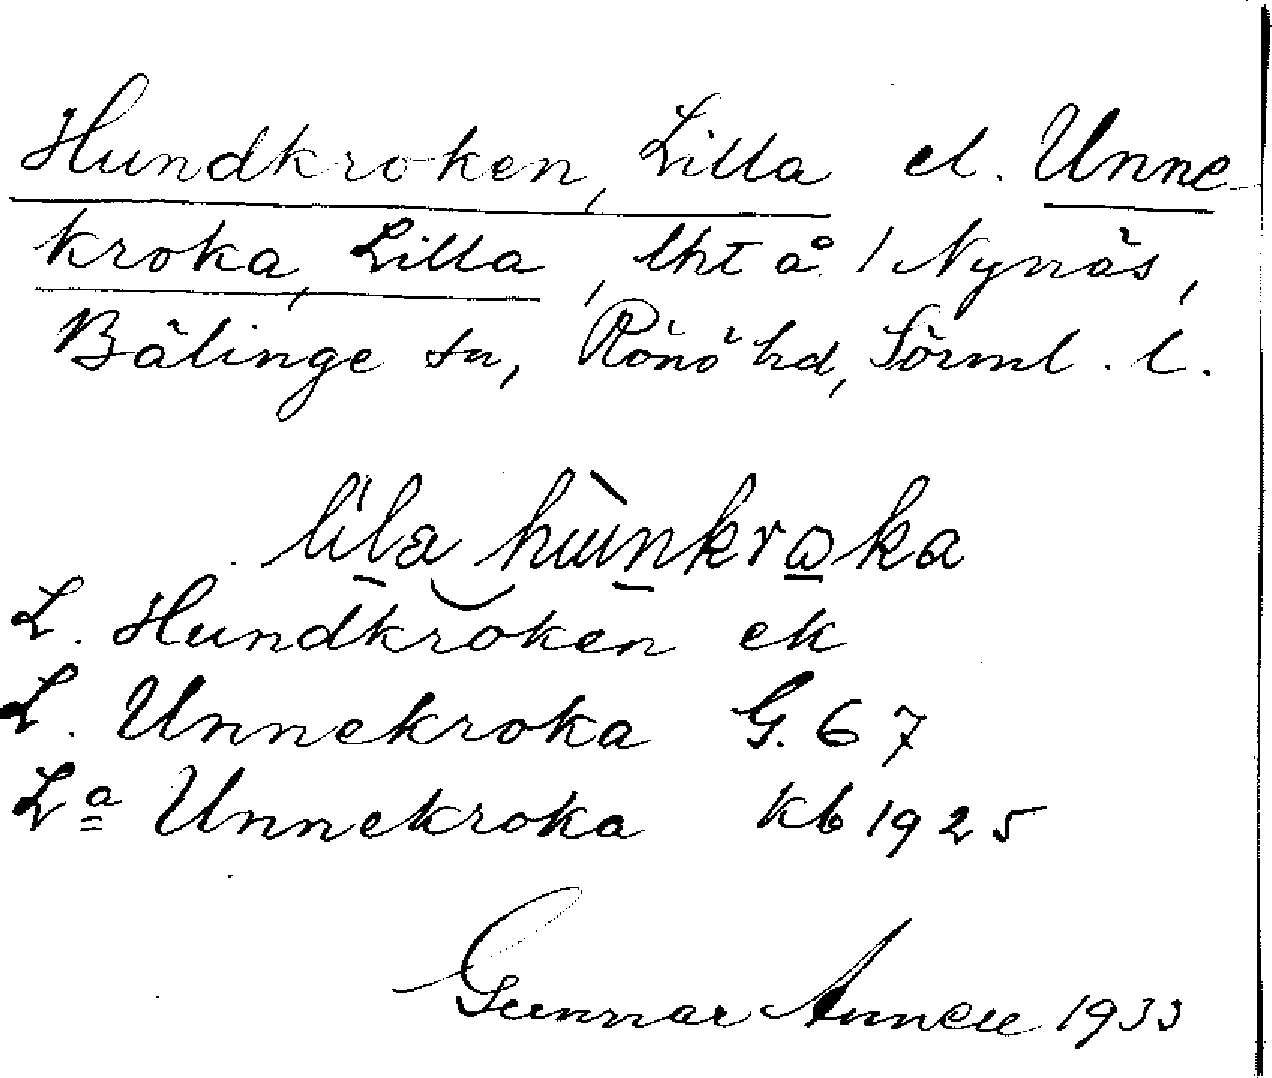 Hundkroken, Lilla el. Unne-
kroka, Lilla, lht å 1 Nynäs,
Bälinge sn, Rönö hd, Sörml. l.
lila hunkroka
L. Hundkroken ek
L. Unnekroka G. 67
La Unnekroka kb 1925
Gunnar Annell 1933